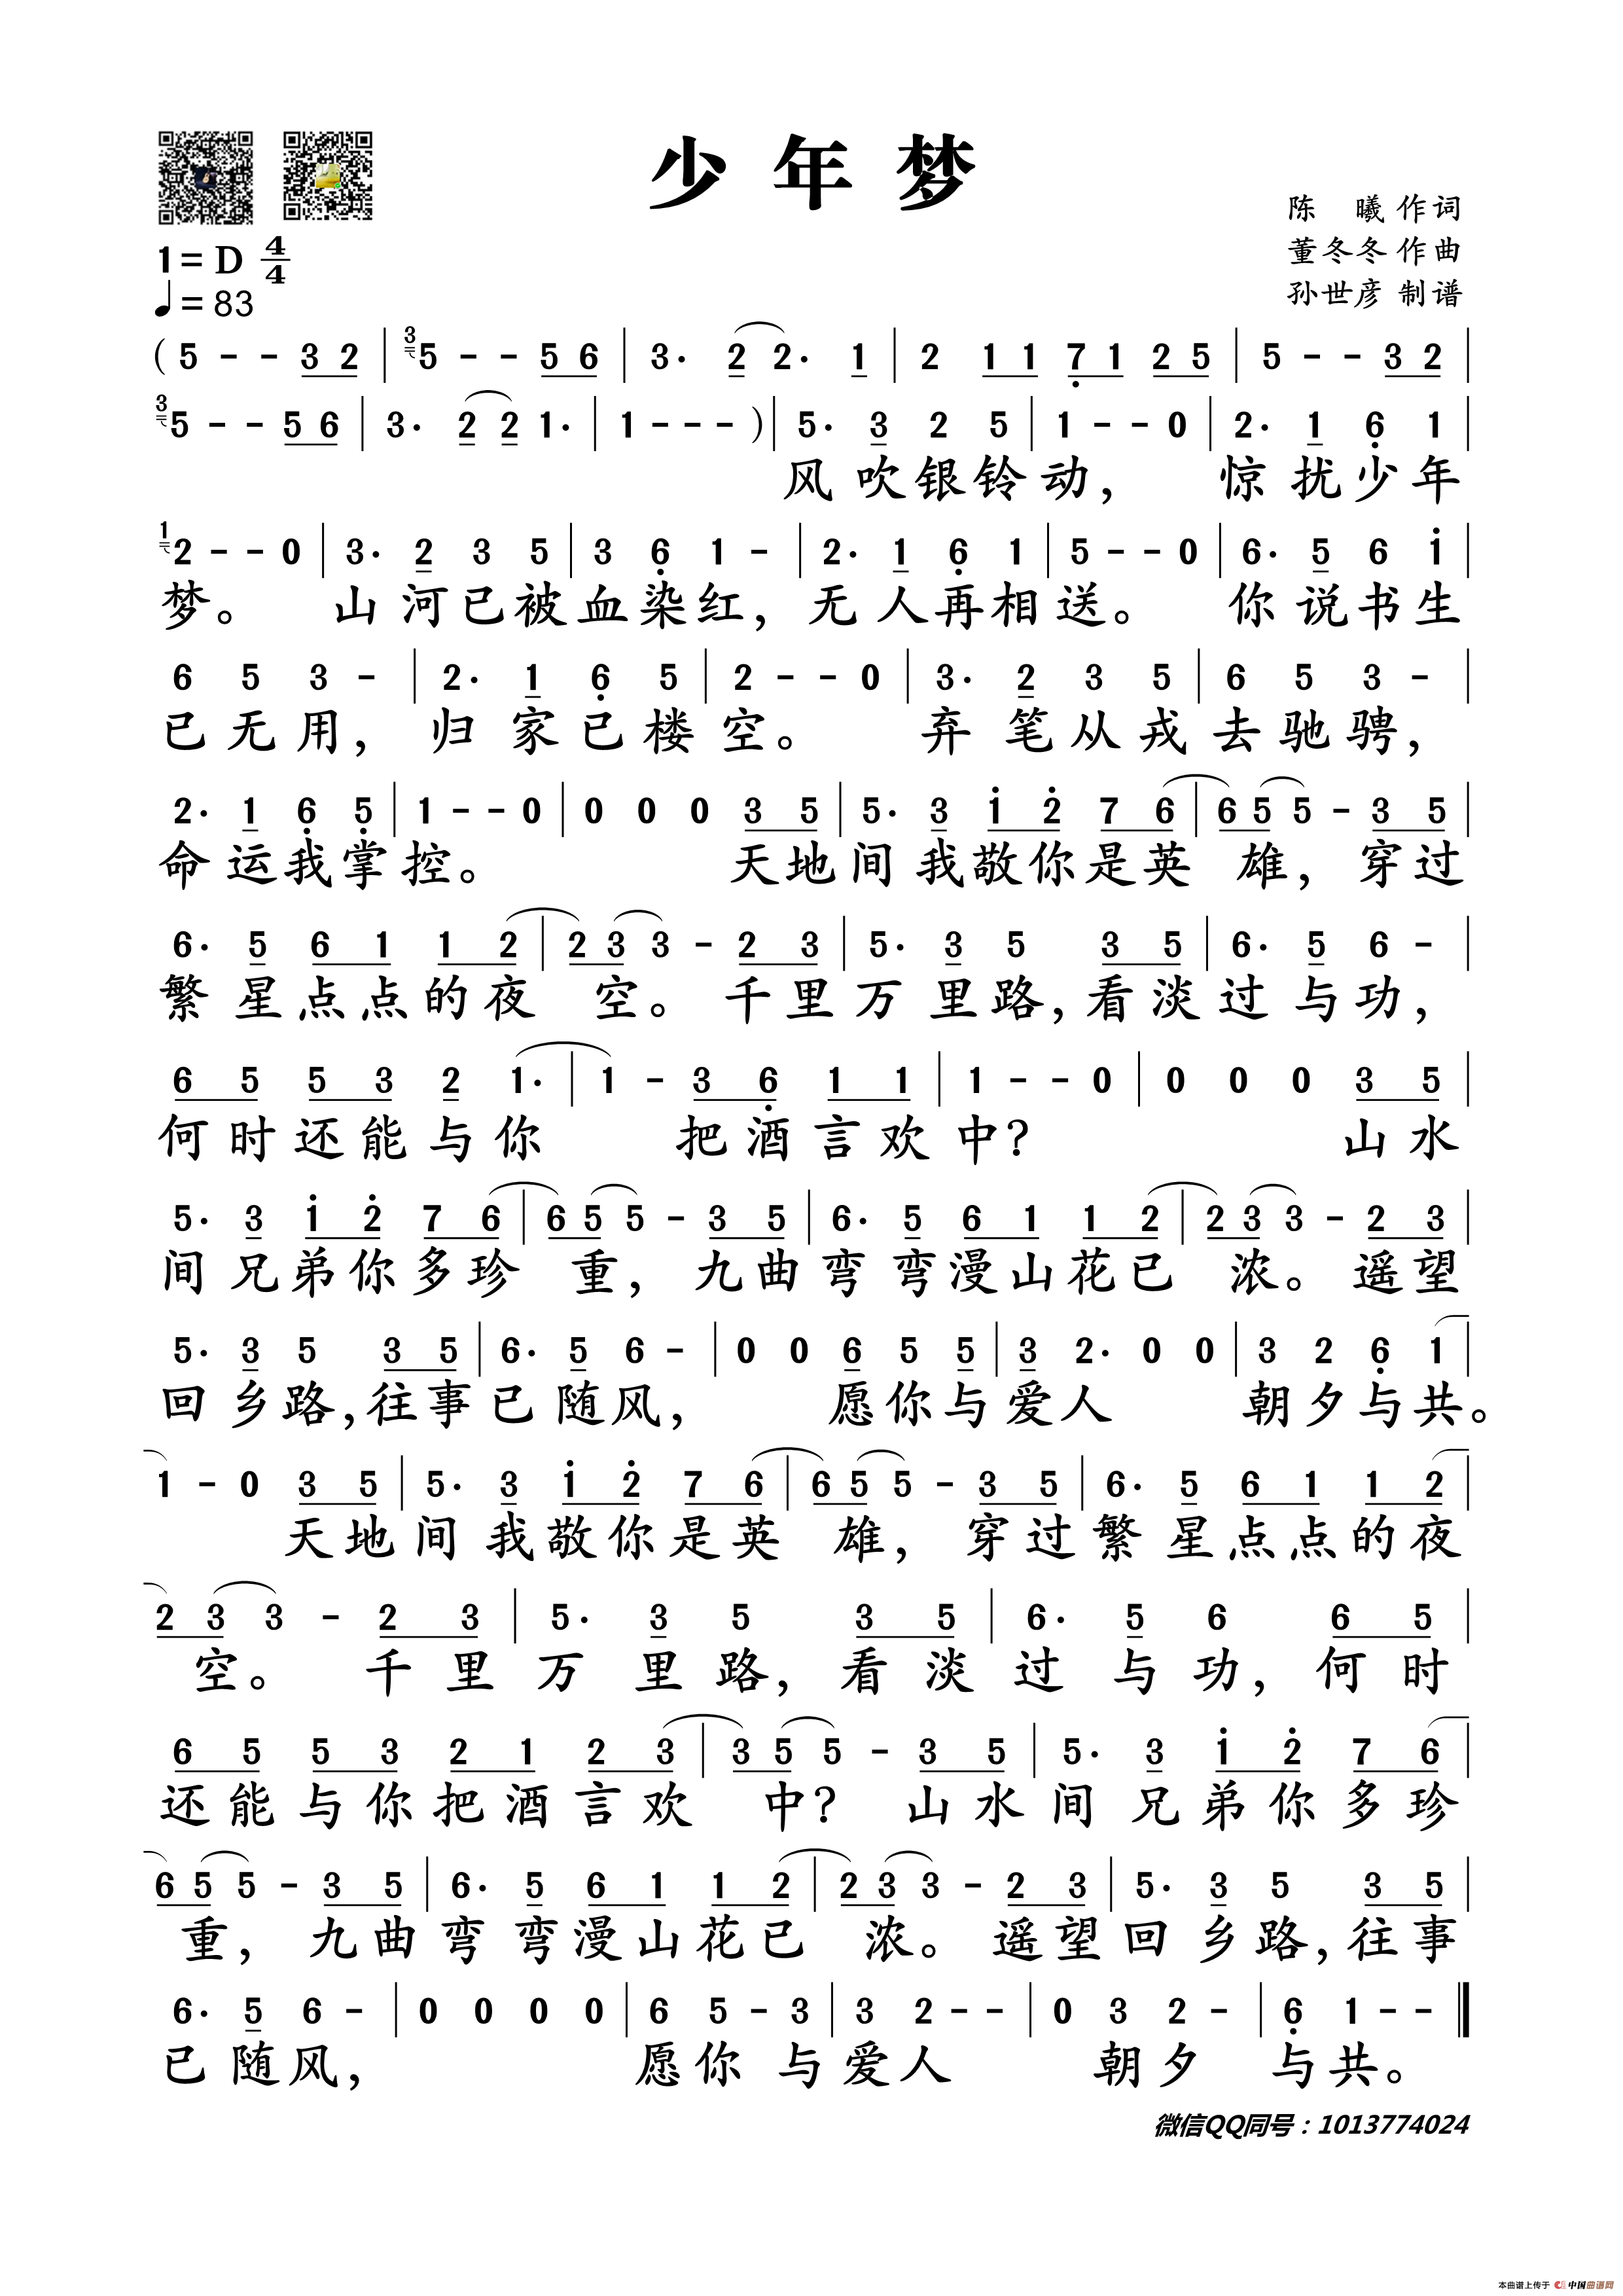 少年梦
陈 曦 作词
董冬冬 作曲
孙世彦 制谱
1= D 4/4
♩= 83
( 5 - - 3 2 | 3 5 - - 5 6 | 3· 2 2· 1 | 2 1 1 7̣ 1 2 5 | 5 - - 3 2 |
3 5 - - 5 6 | 3· 2 2 1· | 1 - - - ) | 5· 3 2 5 | 1 - - 0 | 2· 1 6̣ 1 |
风吹银铃动， 惊扰少年
1 2 - - 0 | 3· 2 3 5 | 3 6̣ 1 - | 2· 1 6̣ 1 | 5 - - 0 | 6· 5 6 1̇ |
梦。 山河已被血染红，无人再相送。 你说书生
6 5 3 - | 2· 1 6̣ 5 | 2 - - 0 | 3· 2 3 5 | 6 5 3 - |
已无用， 归家已楼空。 弃笔从戎去驰骋，
2· 1 6̣ 5̣ | 1 - - 0 | 0 0 0 3 5 | 5· 3 1̇ 2̇ 7 6 | 6 5 5 - 3 5 |
命运我掌控。 天地间我敬你是英 雄，穿过
6· 5 6 1 1 2 | 2 3 3 - 2 3 | 5· 3 5 3 5 | 6· 5 6 - |
繁星点点的夜 空。千里万里路，看淡过与功，
6 5 5 3 2 1· | 1 - 3 6̣ 1 1 | 1 - - 0 | 0 0 0 3 5 |
何时还能与你 把酒言欢中？ 山水
5· 3 1̇ 2̇ 7 6 | 6 5 5 - 3 5 | 6· 5 6 1 1 2 | 2 3 3 - 2 3 |
间兄弟你多珍 重，九曲弯弯漫山花已 浓。遥望
5· 3 5 3 5 | 6· 5 6 - | 0 0 6 5 5 | 3 2· 0 0 | 3 2 6̣ 1 |
回乡路，往事已随风， 愿你与爱人 朝夕与共。
1 - 0 3 5 | 5· 3 1̇ 2̇ 7 6 | 6 5 5 - 3 5 | 6· 5 6 1 1 2 |
天地间我敬你是英 雄，穿过繁星点点的夜
2 3 3 - 2 3 | 5· 3 5 3 5 | 6· 5 6 6 5 |
空。 千里万里路，看淡过与功，何时
6 5 5 3 2 1 2 3 | 3 5 5 - 3 5 | 5· 3 1̇ 2̇ 7 6 |
还能与你把酒言欢 中？ 山水间兄弟你多珍
6 5 5 - 3 5 | 6· 5 6 1 1 2 | 2 3 3 - 2 3 | 5· 3 5 3 5 |
重，九曲弯弯漫山花已 浓。遥望回乡路，往事
6· 5 6 - | 0 0 0 0 | 6 5 - 3 | 3 2 - - | 0 3 2 - | 6̣ 1 - - ‖
已随风， 愿你与爱人 朝夕 与共。
微信QQ同号：1013774024
本曲谱上传于 中国曲谱网